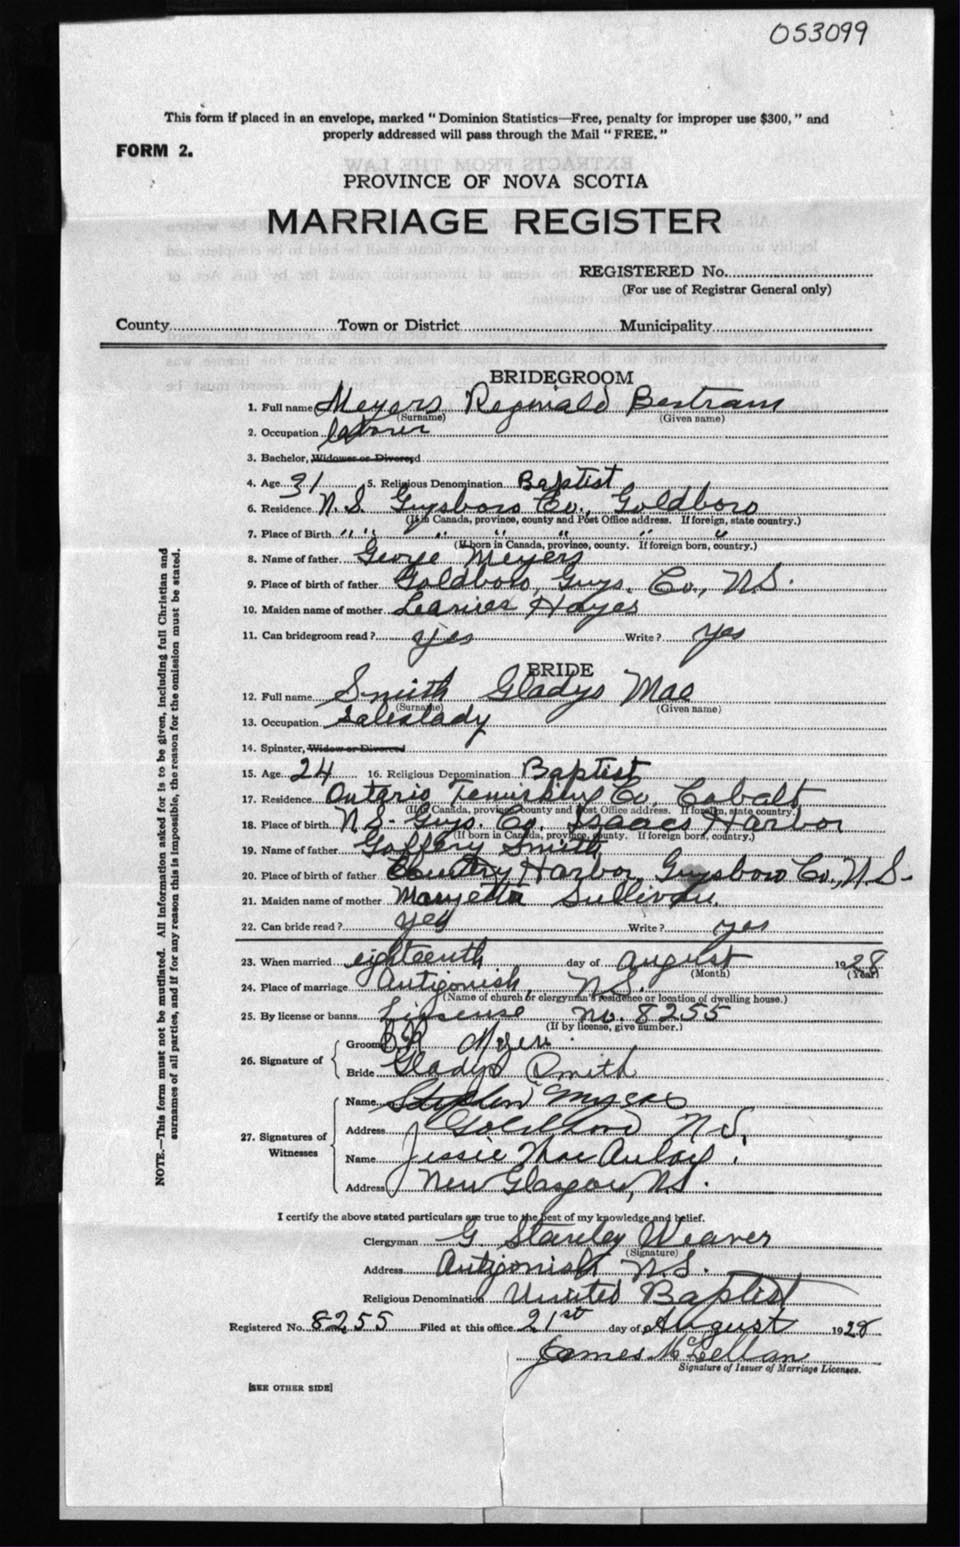 053099
This form if placed in an envelope, marked "Dominion Statistics—Free, penalty for improper use $300," and
properly addressed will pass through the Mail "FREE."
FORM 2.
PROVINCE OF NOVA SCOTIA
MARRIAGE REGISTER
REGISTERED No.
(For use of Registrar General only)
County Town or District Municipality
BRIDEGROOM
1. Full name Meyers Reginald Bertram
(Surname) (Given name)
2. Occupation laborer
3. Bachelor, Widower or Divorced
4. Age 31 5. Religious Denomination Baptist
6. Residence N.S. Guysboro Co., Goldboro
(If in Canada, province, county and Post Office address. If foreign, state country.)
7. Place of Birth " " " " " "
(If born in Canada, province, county. If foreign born, country.)
8. Name of father George Meyers
9. Place of birth of father Goldboro, Guys. Co., N.S.
10. Maiden name of mother Hayes
11. Can bridegroom read? yes Write? yes
BRIDE
12. Full name Smith Gladys Mae
(Surname) (Given name)
13. Occupation Saleslady
14. Spinster, Widow or Divorced
15. Age 24 16. Religious Denomination Baptist
17. Residence Ontario Co. Cobalt
(If in Canada, province, county and Post Office address. If foreign, state country.)
18. Place of birth N.S. Guys. Co. Isaacs Harbor
(If born in Canada, province, county. If foreign born, country.)
19. Name of father Smith
20. Place of birth of father Country Harbor, Guysboro Co., N.S.
21. Maiden name of mother Maryetta Sullivan
22. Can bride read? yes Write? yes
23. When married eighteenth day of August 1928
(Month) (Year)
24. Place of marriage Antigonish, N.S.
(Name of church or clergyman's residence or location of dwelling house.)
25. By license or banns Lisense no. 8255
(If by license, give number.)
26. Signature of
Groom Myers
Bride Gladys Smith
27. Signatures of Witnesses
Name Stephen
Address Goldboro N.S.
Name Jessie MacAulay
Address New Glasgow, N.S.
I certify the above stated particulars are true to the best of my knowledge and belief.
Clergyman G. Stanley Weaver
(Signature)
Address Antigonish N.S.
Religious Denomination United Baptist
Registered No. 8255 Filed at this office 21st day of August 1928
James McLellan
Signature of Issuer of Marriage Licenses.
[SEE OTHER SIDE]
NOTE.—This form must not be mutilated. All information asked for is to be given, including full Christian and
surnames of all parties, and if for any reason this is impossible, the reason for the omission must be stated.